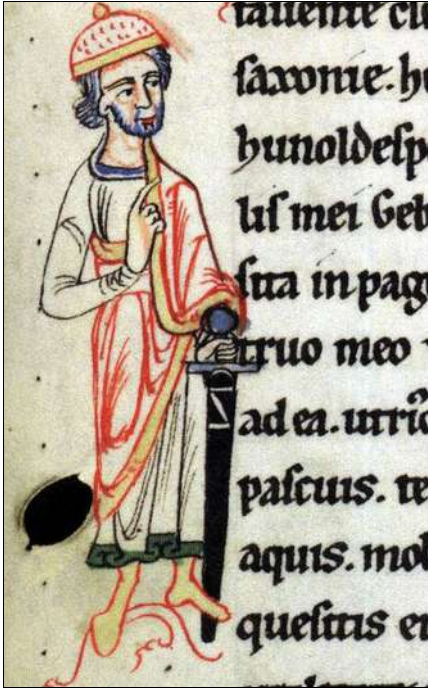 tauente cu
saxonie. hu
hunoldesp
lis mei Geb
sita in pag
truo meo
ad ea. utri
pascuis. te
aquis. mol
quesitis e